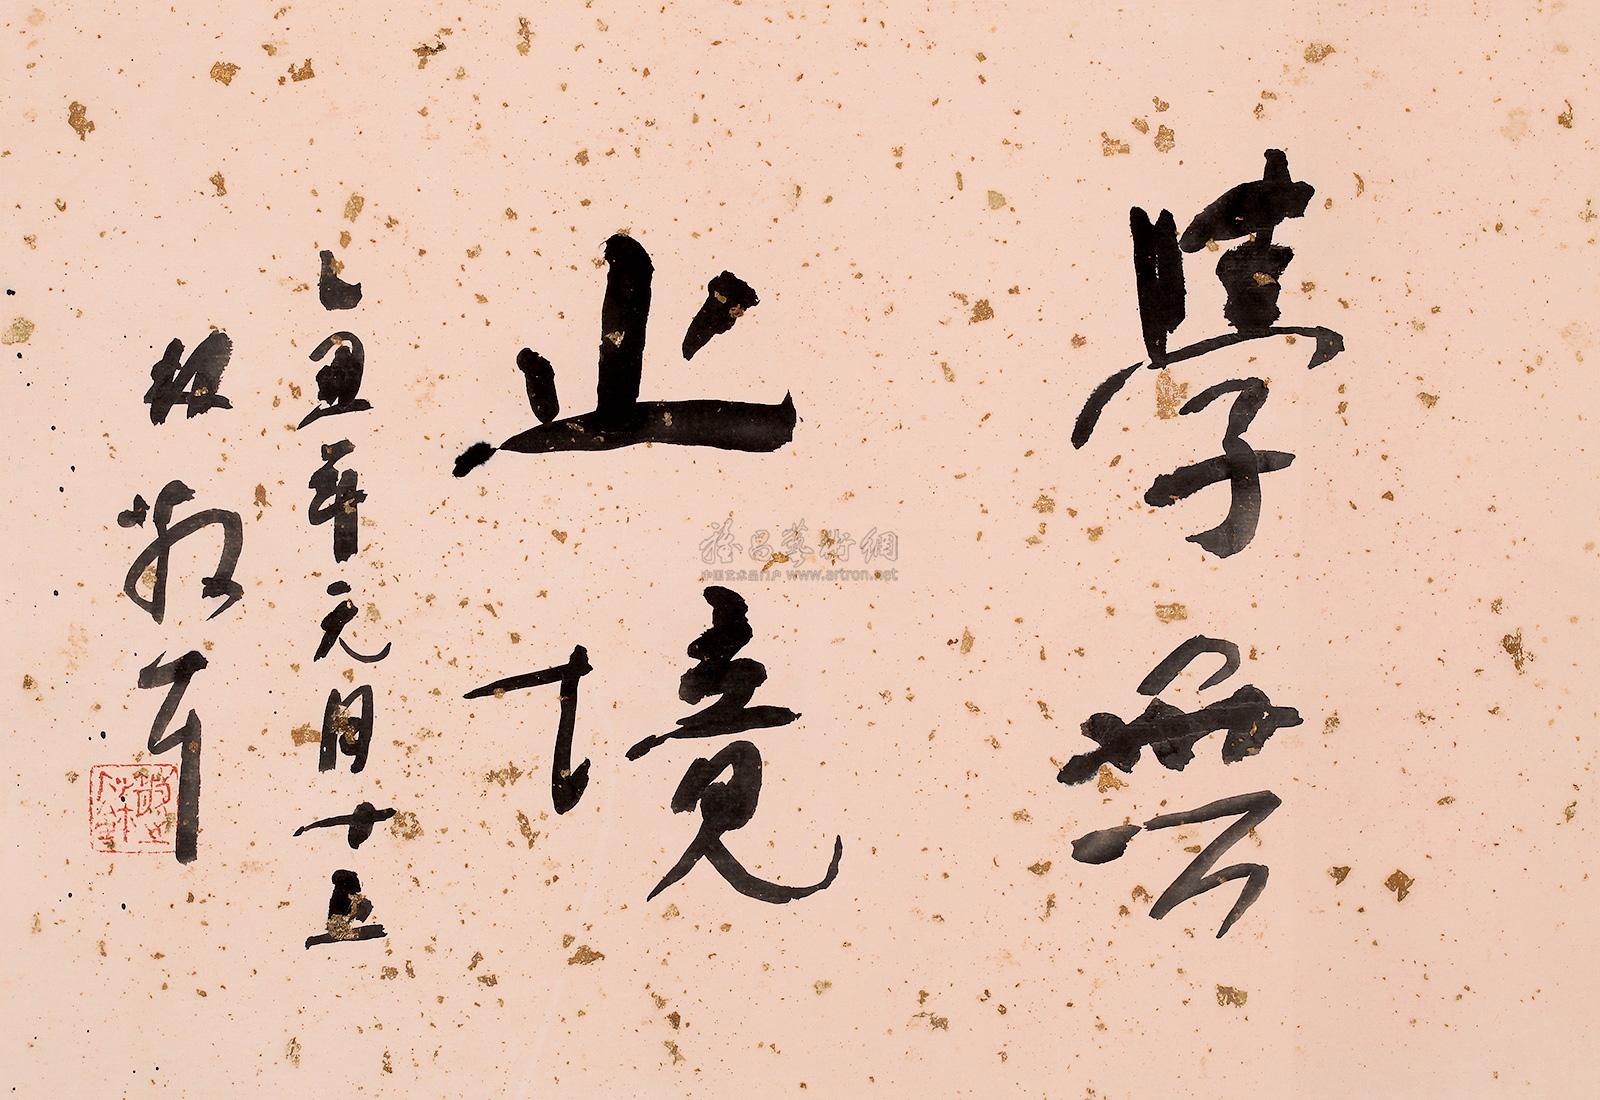 學無
止境
乙丑年元月十五
雅昌藝術網
中国艺术品门户 www.artron.net